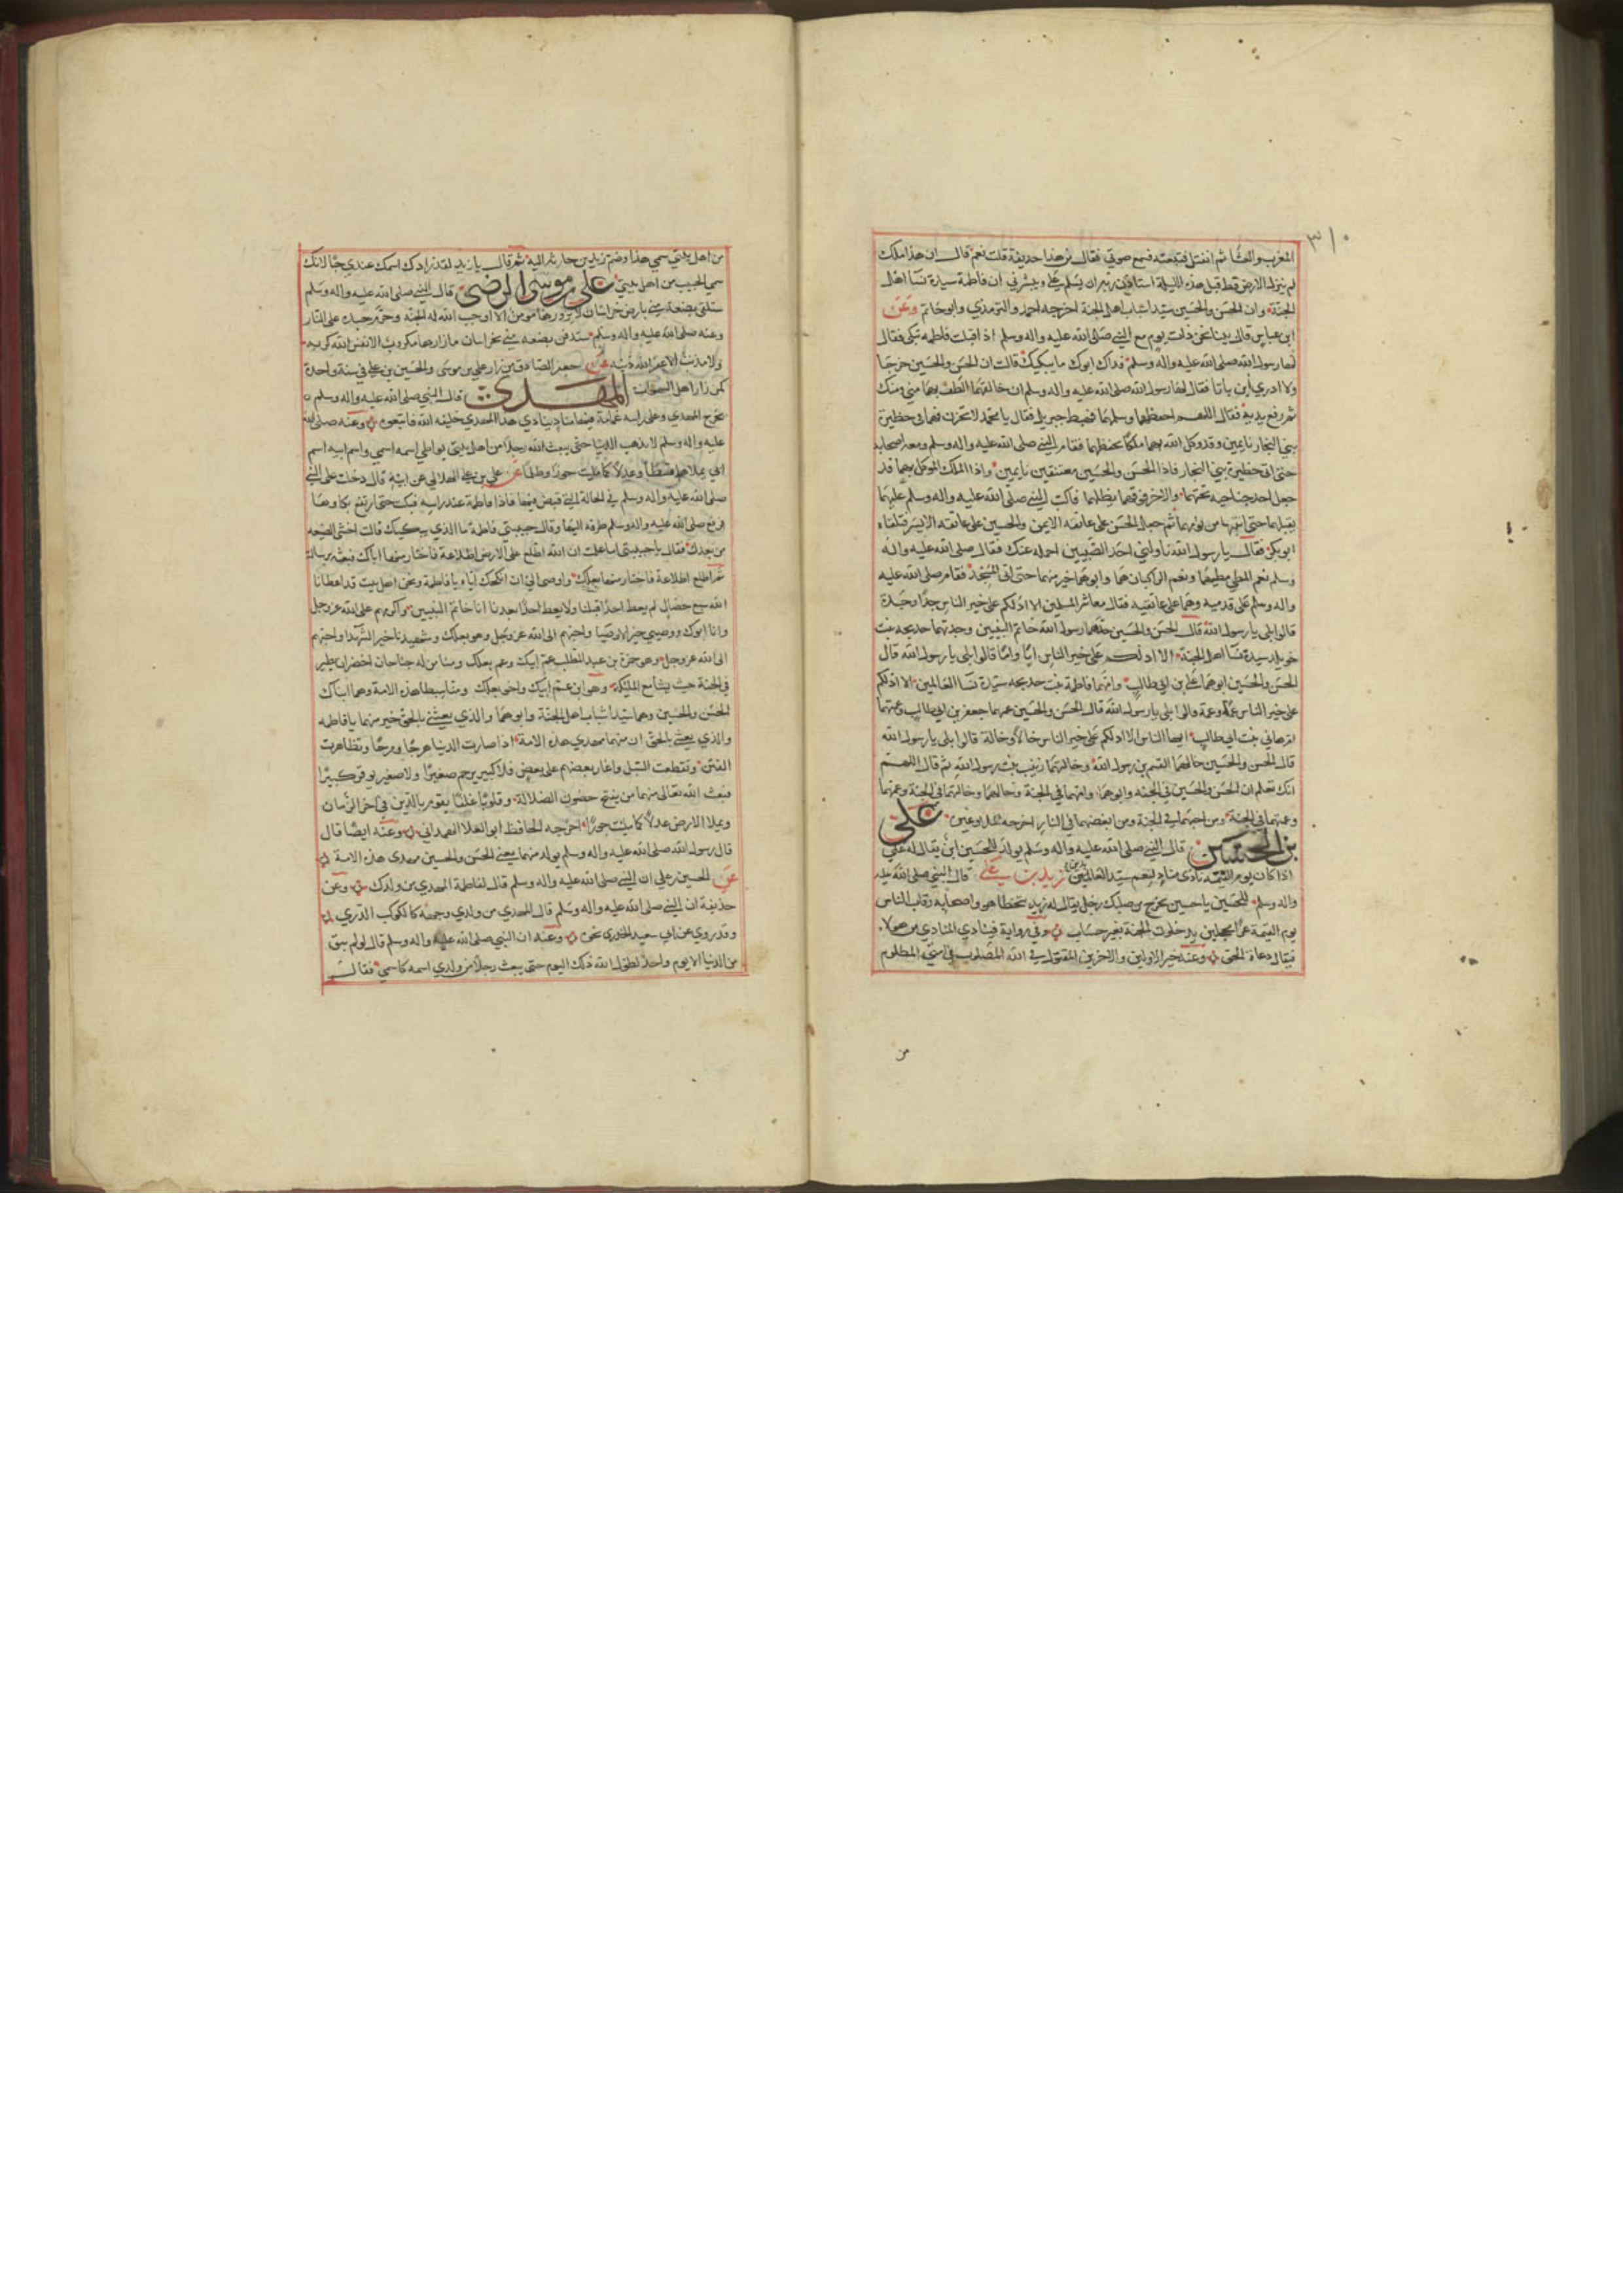 ٣١٠
المغرب والعشا ثم انفتل فتبعته فسمع صوتي فقال من هذا حذيفة قلت نعم قال ان هذا ملك
لم ينزل الارض قط قبل هذه الليلة استاذن ربه ان يسلم علي ويبشرني ان فاطمة سيدة نسآ اهل
الجنة وان الحسن والحسين سيدا شباب اهل الجنة اخرجه احمد والترمذي وابو حاتم وعن
ابن عباس قال بينا نحن ذات يوم مع النبي صلى الله عليه واله وسلم اذ اقبلت فاطمه تبكي فقال
لها رسول الله صلى الله عليه واله وسلم فداك ابوك ما يبكيك قالت ان الحسن والحسين خرجا
ولا ادري اين باتا فقال لها رسول الله صلى الله عليه واله وسلم ان خالقهما الطف بهما مني ومنك
ثم رفع يديه فقال اللهم احفظهما وسلمهما فهبط جبريل فقال يا محمد لا تحزن فهما في حظيرة
بني النجار نايمين وقد وكل الله بهما ملكا يحفظهما فقام النبي صلى الله عليه واله وسلم ومعه اصحابه
حتى اتى حظيرة بني النجار فاذا الحسن والحسين معتنقين نايمين واذا الملك الموكل بهما قد
جعل احد جناحيه تحتهما والاخر فوقهما يظلهما فاكب النبي صلى الله عليه واله وسلم عليهما
يقبلهما حتى انتبها من نومهما ثم جعل الحسن على عاتقه الايمن والحسين على عاتقه الايسر فتلقاه
ابو بكر فقال يا رسول الله ناولني احد الصبيين احمله عنك فقال صلى الله عليه واله
وسلم نعم المطي مطيهما ونعم الراكبان هما وابوهما خير منهما حتى اتى المسجد فقام صلى الله عليه
واله وسلم على قدميه وهما على عاتقيه فقال معاشر المسلمين الا ادلكم على خير الناس جدا وجدة
قالوا بلى يا رسول الله قال الحسن والحسين جدهما رسول الله خاتم النبيين وجدتهما خديجه بنت
خويلد سيدة نسآ اهل الجنة الا ادلكم على خير الناس ابا واما قالوا بلى يا رسول الله قال
الحسن والحسين ابوهما علي بن ابي طالب وامهما فاطمة بنت خديجه سيدة نسآ العالمين الا ادلكم
على خير الناس عما وعمة قالوا بلى يا رسول الله قال الحسن والحسين عمهما جعفر بن ابي طالب وعمتهما
ام هاني بنت ابي طالب ايها الناس الا ادلكم على خير الناس خالا وخالة قالوا بلى يا رسول الله
قال الحسن والحسين خالهما القسم بن رسول الله وخالتهما زينب بنت رسول الله ثم قال اللهم
انك تعلم ان الحسن والحسين في الجنه وابوهما وامهما في الجنة وخالهما وخالتهما في الجنة وعمهما
وعمتهما في الجنة ومن احبهما في الجنة ومن ابغضهما في النار اخرجه علي
بن الحسين قال النبي صلى الله عليه واله وسلم يولد للحسين ابن يقال له علي
اذا كان يوم القيمة نادى مناد ليقم سيد العابدين زيد بن علي قال النبي صلى الله عليه
واله وسلم للحسين يا حسين يخرج من صلبك رجل يقال له زيد يتخطا هو واصحابه رقاب الناس
يوم القيمة غرا محجلين يدخلون الجنة بغير حساب وفي رواية فينادي المنادي من هولاء
فيقال دعاة الحق وعنه خير الاولين والاخرين المقتول في الله المصلوب في امتي المظلوم
من
من اهل بيتي سمي هذا وضم زيد بن حارثة اليه ثم قال يا زيد لقد زادك اسمك عندي حبا لانك
سمي الحبيب من اهل بيتي علي بن موسى الرضى قال النبي صلى الله عليه واله وسلم
ستلقى بضعة مني بارض خراسان لا يزورها مومن الا اوجب الله له الجنة وحرم جسده على النار
وعنه صلى الله عليه واله وسلم ستدفن بضعه مني بخراسان ما زارها مكروب الا نفس الله كربه
ولا مذنب الا غفر الله ذنبه عن جعفر الصادق من زار علي بن موسى والحسين بن علي في سنة واحدة
كمن زار اهل السموات المهدي قال النبي صلى الله عليه واله وسلم
يخرج المهدي وعلى راسه غمامة فيها مناد ينادي هذا المهدي خليفه الله فاتبعوه وعنه صلى الله
عليه واله وسلم لا يذهب الدنيا حتى يبعث الله رجلا من اهل بيتي يواطي اسمه اسمي واسم ابيه اسم
ابي يملاها قسطا وعدلا كما مليت جورا وظلما عن علي بن علي الهلالي عن ابيه قال دخلت على النبي
صلى الله عليه واله وسلم في الحالة التي قبض فيها فاذا فاطمة عند راسه فبكت حتى ارتفع بكاوها
فرفع صلى الله عليه واله وسلم طرفه اليها وقال حبيبتي فاطمة ما الذي يبكيك قالت اخشى الضيعه
من بعدك فقال يا حبيبتي اما علمت ان الله اطلع على الارض اطلاعة فاختار منها اباك فبعثه برسالته
ثم اطلع اطلاعة فاختار منها بعلك واوحى الي ان انكحك اياه يا فاطمة ونحن اهل بيت قد اعطانا
الله سبع خصال لم يعط احدا قبلنا ولا يعط احدا بعدنا انا خاتم النبيين واكرمهم على الله عز وجل
وانا ابوك ووصيي خير الاوصيا واحبهم الى الله عز وجل وهو بعلك وشهيدنا خير الشهدا واحبهم
الى الله عز وجل وهو حمزة بن عبد المطلب عم ابيك وعم بعلك ومنا من له جناحان اخضران يطير
في الجنة حيث يشا مع المليكة وهو ابن عم ابيك واخو بعلك ومنا سبطا هذه الامة وهما ابناك
الحسن والحسين وهما سيدا شباب اهل الجنة وابوهما والذي بعثني بالحق خير منهما يا فاطمه
والذي بعثني بالحق ان منهما مهدي هذه الامة اذا صارت الدنيا هرجا ومرجا وتظاهرت
الفتن وتقطعت السبل واغار بعضهم على بعض فلا كبير يرحم صغيرا ولا صغير يوقر كبيرا
فبعث الله تعالى منهما من يفتح حصون الضلالة وقلوبا غلفا يقوم بالدين في اخر الزمان
ويملا الارض عدلا كما مليت جورا اخرجه الحافظ ابو العلا الهمداني وعنه ايضا قال
قال رسول الله صلى الله عليه واله وسلم يولد منهما يعني الحسن والحسين مهدي هذه الامة
عن الحسين بن علي ان النبي صلى الله عليه واله وسلم قال لفاطمة المهدي من ولدك وعن
حذيفة ان النبي صلى الله عليه واله وسلم قال المهدي من ولدي وجهه كالكوكب الدري
وقد روي عن ابي سعيد الخدري نحوه وعنه ان النبي صلى الله عليه واله وسلم قال لو لم يبق
من الدنيا الا يوم واحد لطول الله ذلك اليوم حتى يبعث رجلا من ولدي اسمه كاسمي فقال